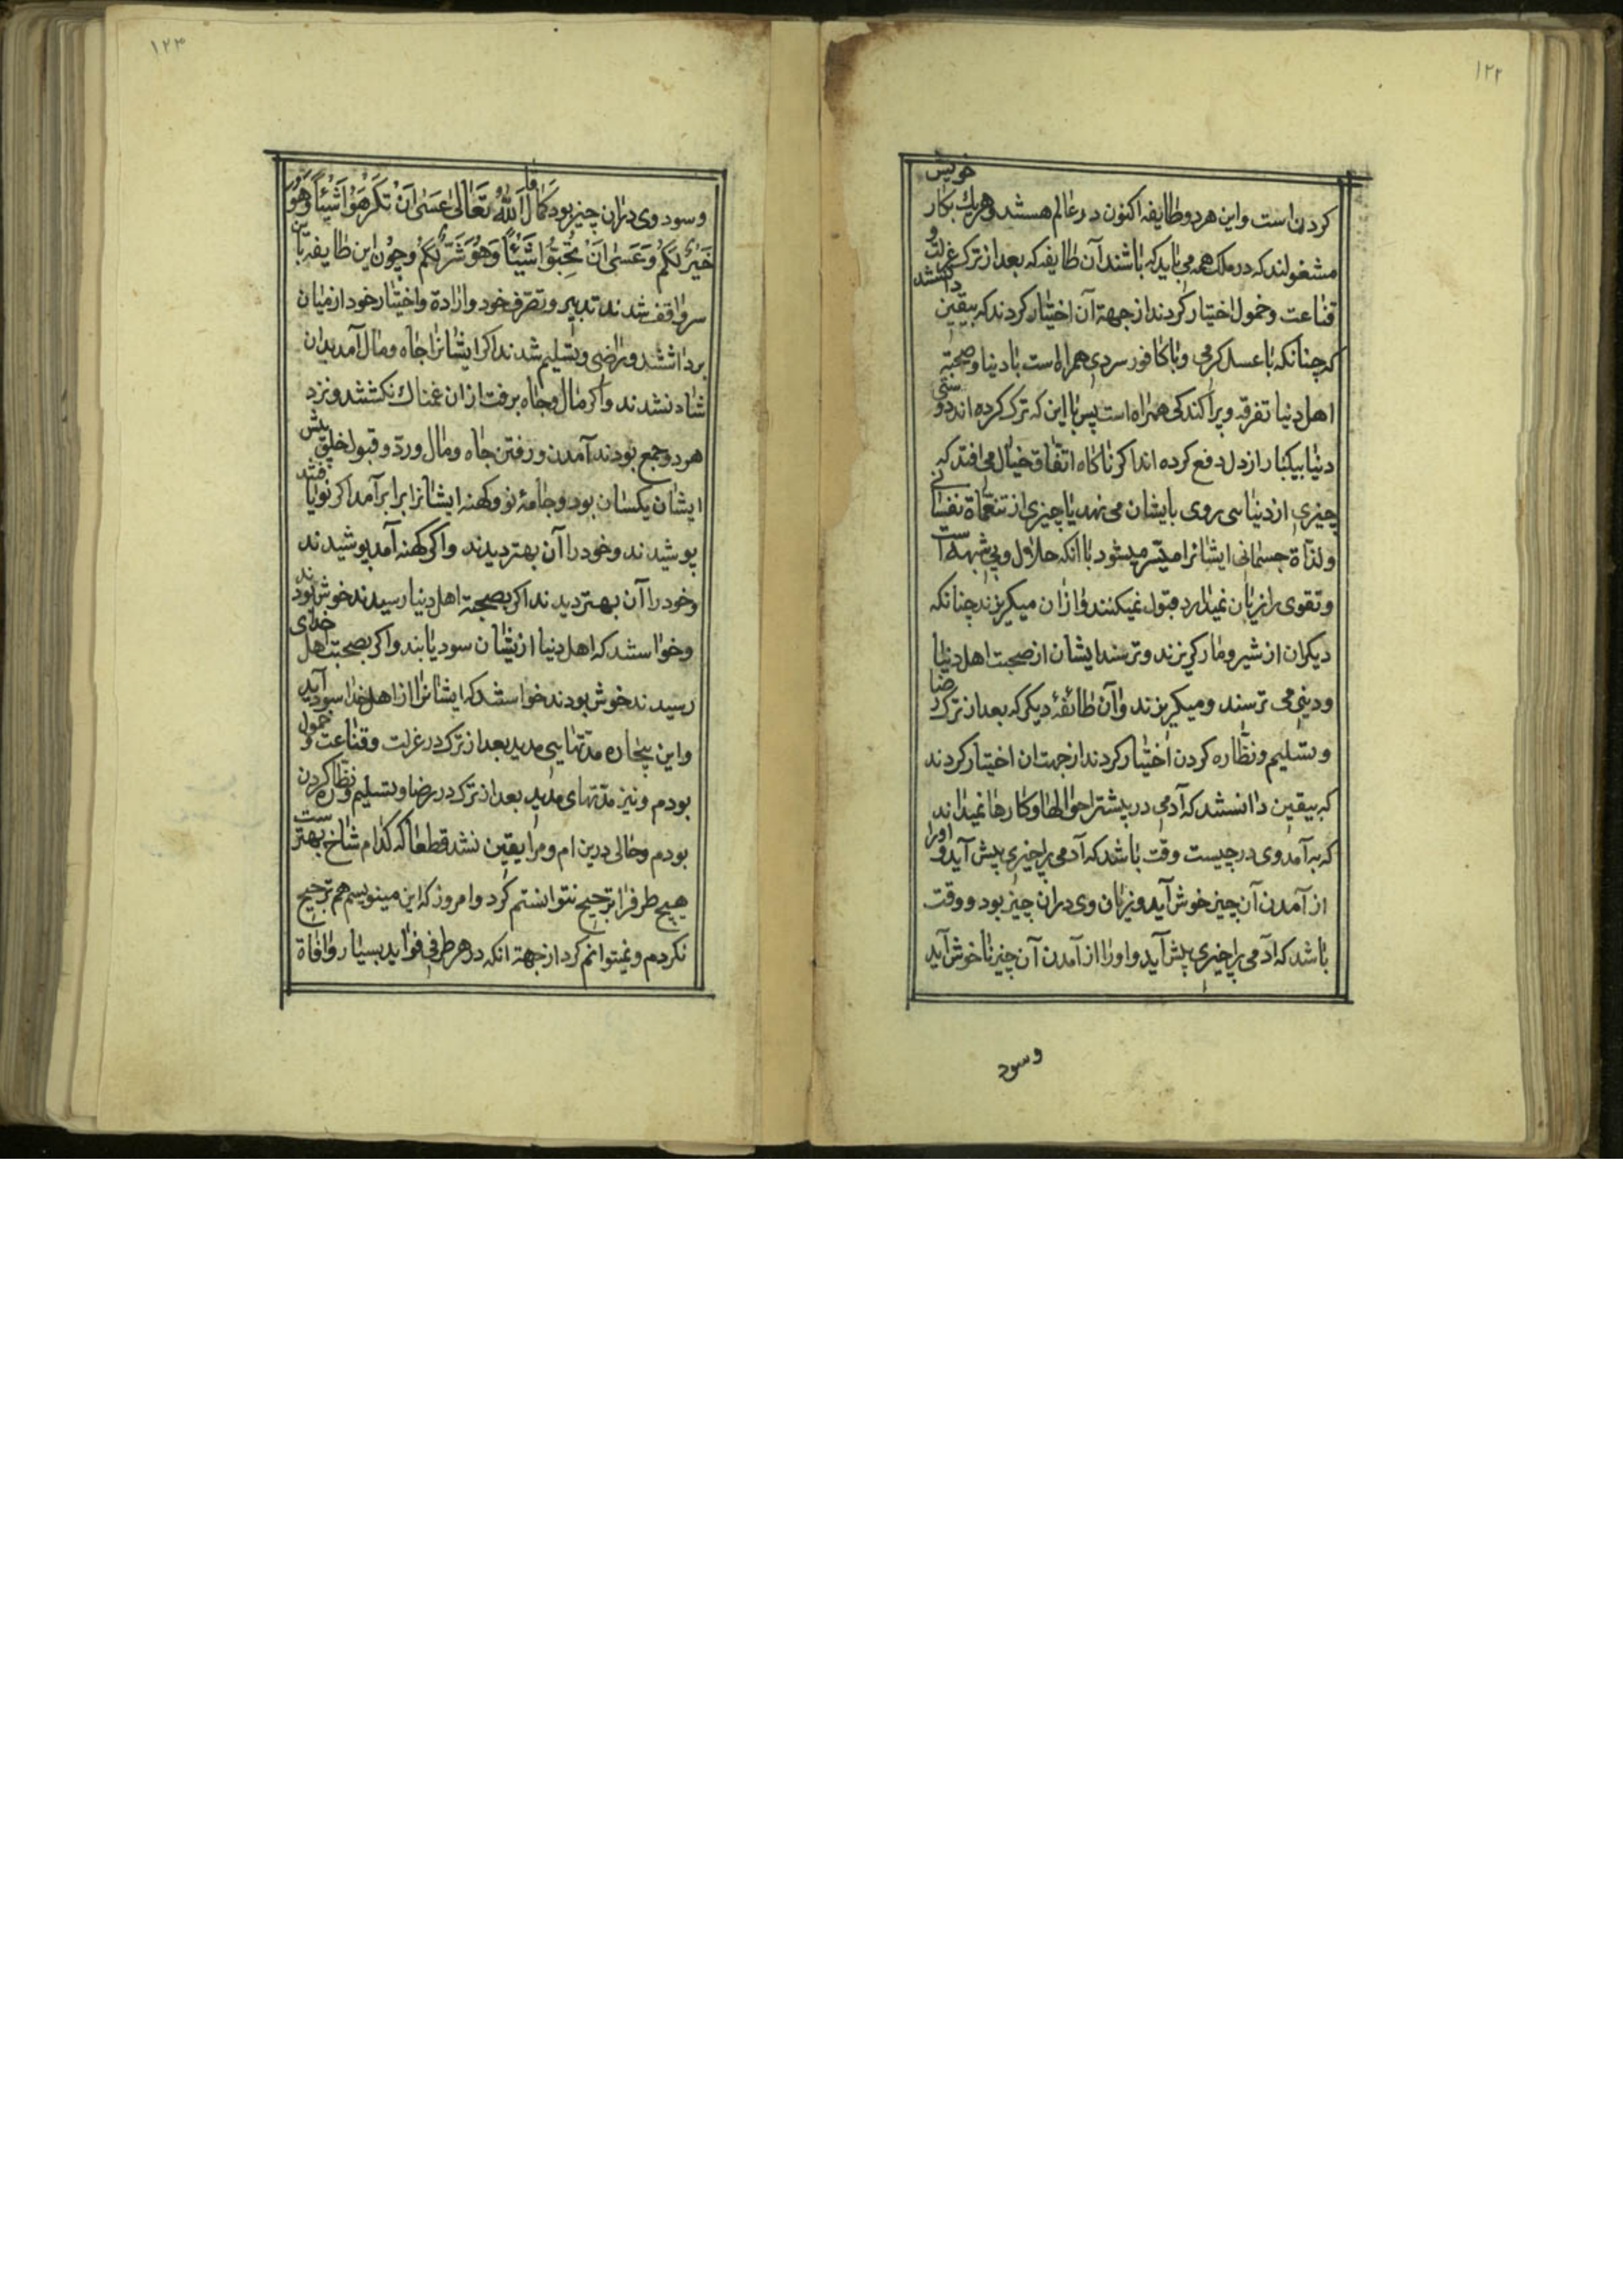 ۱۲۲
کردن است و این هر دو طایفه اکنون در عالم هستند و هر یك بکار خویش
مشغولند که در ملك همه می باید که باشند آن طایفه که بعد از ترک عزلت و
قناعت و خمول اختیار کردند از جهة آن اختیار کردند که بیقین دانستند
که چنانکه با عسل کرمی و با کافور سردی همراه است با دنیا و صحبة
اهل دنیا تفرقه و پراکندکی همراه است پس با این که ترک کرده اند و دوستی
دنیا بیکبار از دل دفع کرده اند اکر ناکاه اتفاق خیال می افتد که
چیزی از دنیا سی روی بایشان می نهد یا چیزی از تنعماة نفسانی
و لذاة جسمانی ایشانرا میسر میشود با آنکه حلال و بی شبهه است
و تقوی را زیان نمیدارد قبول نمیکنند و از ان میکریزند چنانکه
دیکران از شیر و مار کریزند و ترسند ایشان از صحبت اهل دنیا
و دینی می ترسند و میکریزند و آن طائفۀ دیکر که بعد از ترک رضا
و تسلیم و نظاره کردن اختیار کردند از جهت ان اختیار کردند
که بیقین دانستند که آدمی در بیشتر احوالها و کارها نمیداند
که به آمد وی در چیست وقت باشد که آدمی را چیزی پیش آید و اورا
از آمدن آن چیز خوش آید و زیان وی در ان چیز بود و وقت
باشد که آدمی را چیزی پیش آید و اورا از آمدن آن چیز ناخوش آید
وسود
۱۲۳
و سود وی در ان چیز بود کما قال اللّٰهُ تَعَالٰی عَسٰی اَنْ تَکْرَهُوْا شَیْئًا وَهُوَ
خَیْرٌ لَکُمْ وَعَسٰی اَنْ تُحِبُّوْا شَیْئًا وَهُوَ شَرٌّ لَکُمْ و چون این طایفه باین
سر واقف شدند تدبیر و تصرف خود و ارادة و اختیار خود از میان
برداشتند و راضی و تسلیم شدند اکر ایشانرا جاه و مال آمد بدان
شاد نشدند و اکر مال و جاه برفت از ان غمناك نکشتند و نزد
هر دو جمع بودند آمدن و رفتن جاه و مال و رد و قبول خلق پیش
ایشان یکسان بود و جامۀ نو و کهنه ایشانرا برابر آمد اکر نو یافتند
پوشیدند و خود را آن بهتر دیدند و اکر کهنه آمد پوشیدند
و خود را آن بهتر دیدند اکر بصحبة اهل دنیا رسیدند خوش بودند
و خواستند که اهل دنیا از یشان سود یابند و اکر بصحبت اهل خدای
رسیدند خوش بودند خواستند که ایشانرا از اهل خدا سود آید
و این بیچاره مدتهایی مدید بعد از ترک در عزلت و قناعت و خمول
بودم و نیز مدتهای مدید بعد از ترک در رضا و تسلیم و نظاره کردن
بودم و حالی درین ام و مرا یقین نشد قطعا که کدام شاخ بهترست
هیچ طرف را ترجیح نتوانستم کرد و امروز که این مینویسم هم ترجیح
نکردم و نمیتوانم کرد از جهة انکه در هر طرفی فواید بسیار و افاة